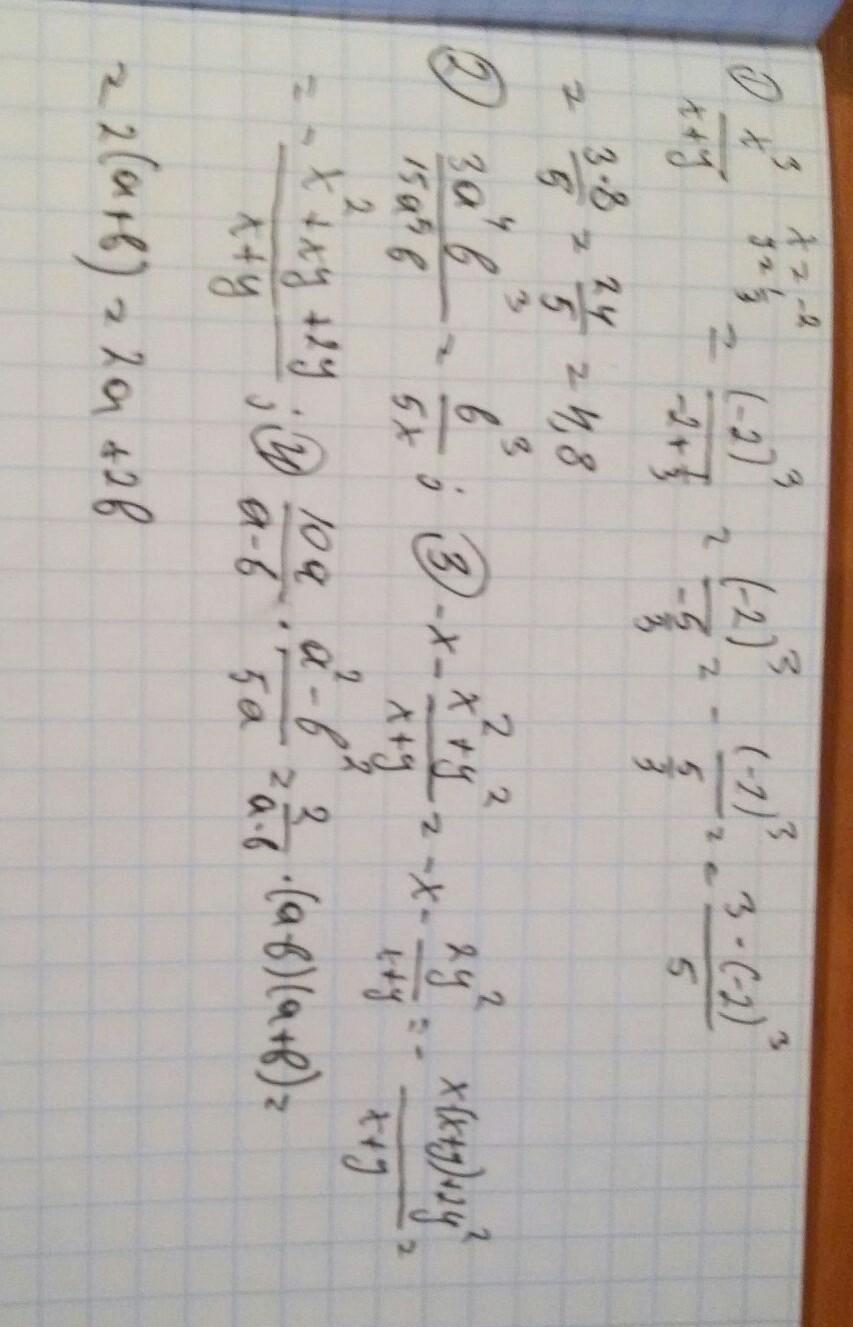 ① x³/(x+y) x=-2 y=1/3 = (-2)³/(-2+1/3) = (-2)³/(-5/3) = - (-2)³/(5/3) = - 3·(-2)³/5
= 3·8/5 = 24/5 = 4,8
② 3a⁴b³/15a⁴b = b³/5x ; ③ -x - (x²+y²)/(x+y) = -x - 2y²/(x+y) = - (x(x+y)+2y²)/(x+y) =
= - (x²+xy+2y)/(x+y) ; ④ 10a/(a-b) · (a²-b²)/5a = 2/(a-b) · (a-b)(a+b) =
= 2(a+b) = 2a+2b